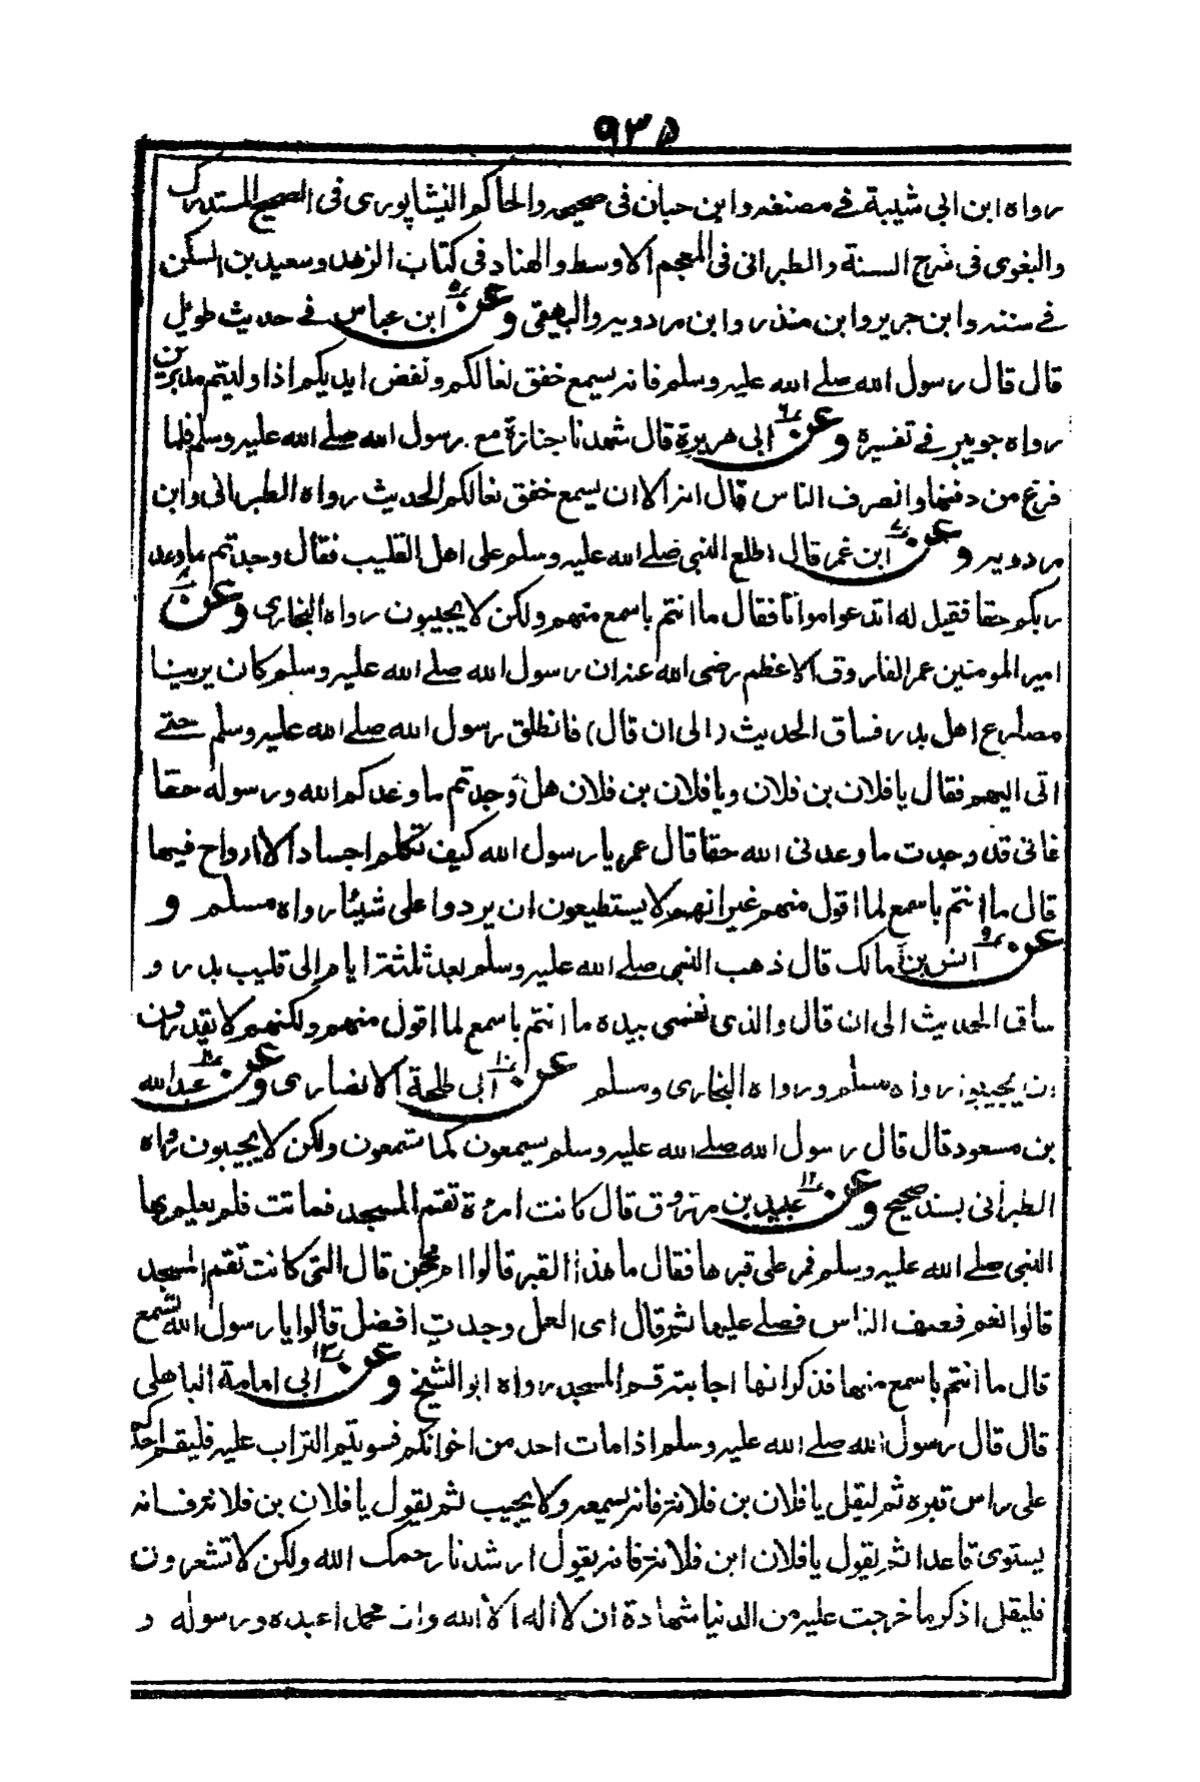 ٩٣٥
رواه ابن ابی شیبة فے مصنفه وابن حبان فی صحیحه والحاکم النیشاپوری فی الصحیح المستدرک
والبغوی فی شرح السنة والطبرانی فی المعجم الاوسط والهناد فی کتاب الزهد وسعید بن السکن
فے سننه وابن جریر وابن منذر وابن مردویه والبیهقی وعن۵ ابن عباس فے حدیث طویل
قال قال رسول الله صلے الله علیه وسلم فانه یسمع خفق نعالکم ونفض ایدیکم اذا ولیتم مدبرین
رواه جویبر فے تفسیره وعن۶ ابی هریرة قال شهدنا جنازة مع رسول الله صلے الله علیه وسلم فلما
فرغ من دفنها وانصرف الناس قال انه الان یسمع خفق نعالکم الحدیث رواه الطبرانی وابن
مردویه وعن۷ ابن عمر قال اطلع النبی صلے الله علیه وسلم علی اهل القلیب فقال وجدتم ماوعد
ربکم حقا فقیل له اتدعوا مواتا فقال ما انتم باسمع منهم ولکن لا یجیبون رواه البخاری وعن۸
امیر المومنین عمر الفاروق الاعظم رضی الله عنه ان رسول الله صلے الله علیه وسلم کان یرینا
مصارع اهل بدر فساق الحدیث (الی ان قال) فانطلق رسول الله صلے الله علیه وسلم حتے
اتی الیهم فقال یا فلان بن فلان ویا فلان بن فلان هل وجدتم ما وعدکم الله ورسوله حقا
فانی قد وجدت ما وعدنی الله حقا قال عمر یا رسول الله کیف تکلم اجسادا لا ارواح فیها
قال ما انتم باسمع لما اقول منهم غیر انهم لا یستطیعون ان یردوا علی شیئا رواه مسلم و
عن۹ انس بن مالک قال ذهب النبی صلے الله علیه وسلم بعد ثلثة ایام الی قلیب بدر و
ساق الحدیث الی ان قال والذی نفسی بیده ما انتم باسمع لما اقول منهم ولکنهم لا یقدرون
ان یجیبوا رواه مسلم ورواه البخاری ومسلم عن۱۰ ابی طلحة الانصاری وعن۱۱ عبدالله
بن مسعود قال قال رسول الله صلے الله علیه وسلم یسمعون کما تسمعون ولکن لا یجیبون رواه
الطبرانی بسند صحیح وعن۱۲ عبید بن مرزوق قال کانت امرءة تقم المسجد فماتت فلم یعلم بها
النبی صلے الله علیه وسلم فمر علی قبرها فقال ما هذا القبر قالوا ام محجن قال التی کانت تقم المسجد
قالوا نعم فصف الناس فصلے علیها ثم قال ای العمل وجدت افضل قالوا یا رسول الله اتسمع
قال ما انتم باسمع منها فذکر انها اجابته قم المسجد رواه ابو الشیخ وعن۱۳ ابی امامة الباهلی
قال قال رسول الله صلے الله علیه وسلم اذا مات احد من اخوانکم فسویتم التراب علیه فلیقم احدکم
علی راس قبره ثم لیقل یا فلان بن فلانة فانه یسمعه ولا یجیب ثم یقول یا فلان بن فلانة فانه
یستوی قاعدا ثم یقول یا فلان ابن فلانة فانه یقول ارشدنا رحمک الله ولکن لا تشعرون
فلیقل اذکر ما خرجت علیه من الدنیا شهادة ان لا اله الا الله وان محمدا عبده ورسوله و